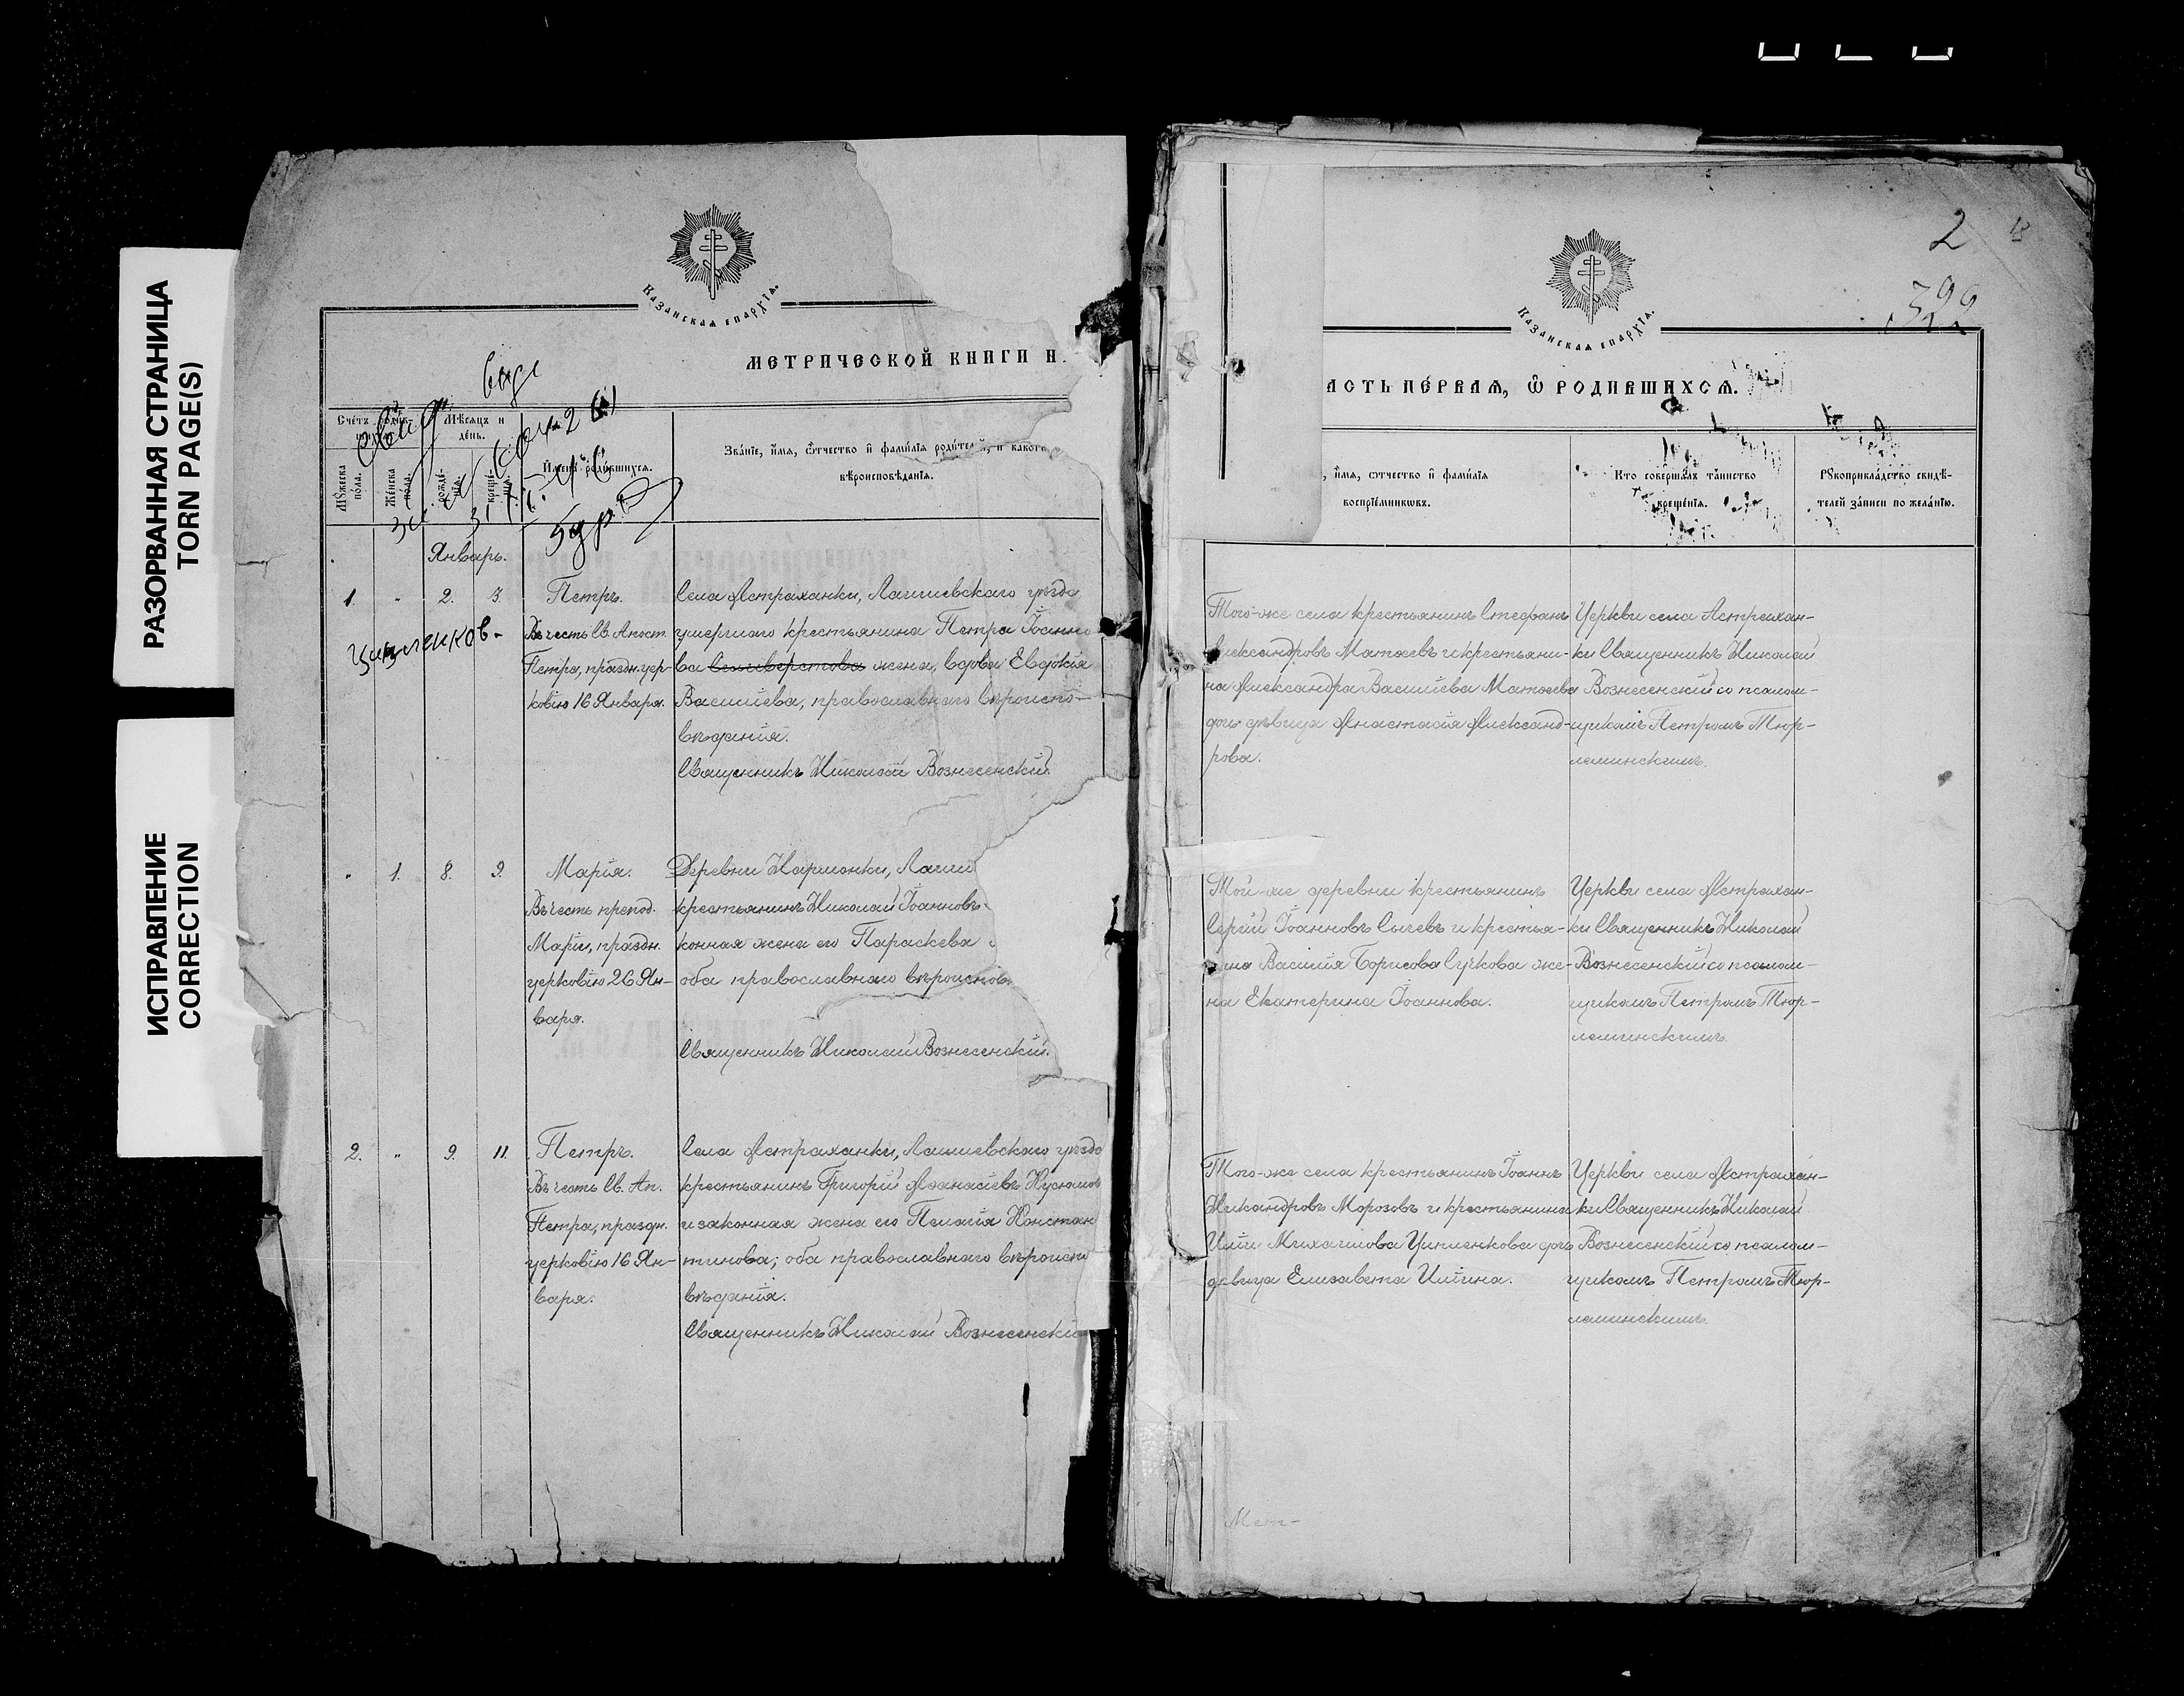 РАЗОРВАННАЯ СТРАНИЦА
TORN PAGE(S)
ИСПРАВЛЕНИЕ
CORRECTION
Казанская епархїѧ.
МЕТРИЧЕСКОЙ КНИГИ Н
Мѣсяцъ и день.
Мꙋжеска пола.
Женска пола.
Имена родившихся.
Званїе, имя, ѿчество и фамилїя родителей, и какого
вѣроисповѣданїя.
Январь.
1. „ 2. 3.
Петръ.
Въ честь Св. Апост.
Петра, праздн. цер-
ковію 16 Января.
Села Астраханки, Лаишевскаго уѣзда
умершаго крестьянина Петра Іоанно
ва Селиверстова жена, вдова Евдокія
Васильева, православнаго вѣроиспо-
вѣданія.
Священникъ Николай Вознесенскій.
„ 1. 8. 9.
Марія.
Въ честь препод.
Маріи, праздн.
церковію 26 Ян-
варя.
Деревни Нармонки, Лаиш
крестьянинъ Николай Іоанновъ
конная жена его Параскева
оба православнаго вѣроиспов
Священникъ Николай Вознесенскій.
2. „ 9. 11.
Петръ.
Въ честь Св. Ап.
Петра, праздн.
церковію 16 Ян-
варя.
Села Астраханки, Лаишевскаго уѣзда
крестьянинъ Григорій Аѳанасіевъ
и законная жена его Пелагія Констан
тинова; оба православнаго вѣроиспо
вѣданія.
Священникъ Николай Вознесенскій
2
Казанская епархїѧ.
АСТЬ ПЕРВАЯ, Ѡ РОДИВШИХСЯ.
имя, ѿчество и фамилїя
воспрїемникѡвъ.
Кто совершалъ таинство
крещенїя.
Рꙋкоприкладство свидѣ-
телей записи по желанїю.
Того-же села крестьянинъ Стефанъ
Александровъ Матвеевъ и крестьяни-
на Александра Васильева Матвеева
дочь дѣвица Анастасія Александ-
рова.
Церкви села Астрахан-
ки Священникъ Николай
Вознесенскій со псалом-
щикомъ Петромъ Тюр-
леминскимъ.
Той-же деревни крестьянинъ
Сергій Іоанновъ Сычевъ и крестья-
нина Василія Борисова Сучкова же-
на Екатерина Іоаннова.
Церкви села Астрахан-
ки Священникъ Николай
Вознесенскій со псалом-
щикомъ Петромъ Тюр-
леминскимъ.
Того-же села крестьянинъ Іоаннъ
Никандровъ Морозовъ и крестьянина
Иліи Михаилова Цыпленкова дочь
дѣвица Елизавета Ильина.
Церкви села Астрахан-
ки Священникъ Николай
Вознесенскій со псалом-
щикомъ Петромъ Тюр-
леминскимъ.
Мет-